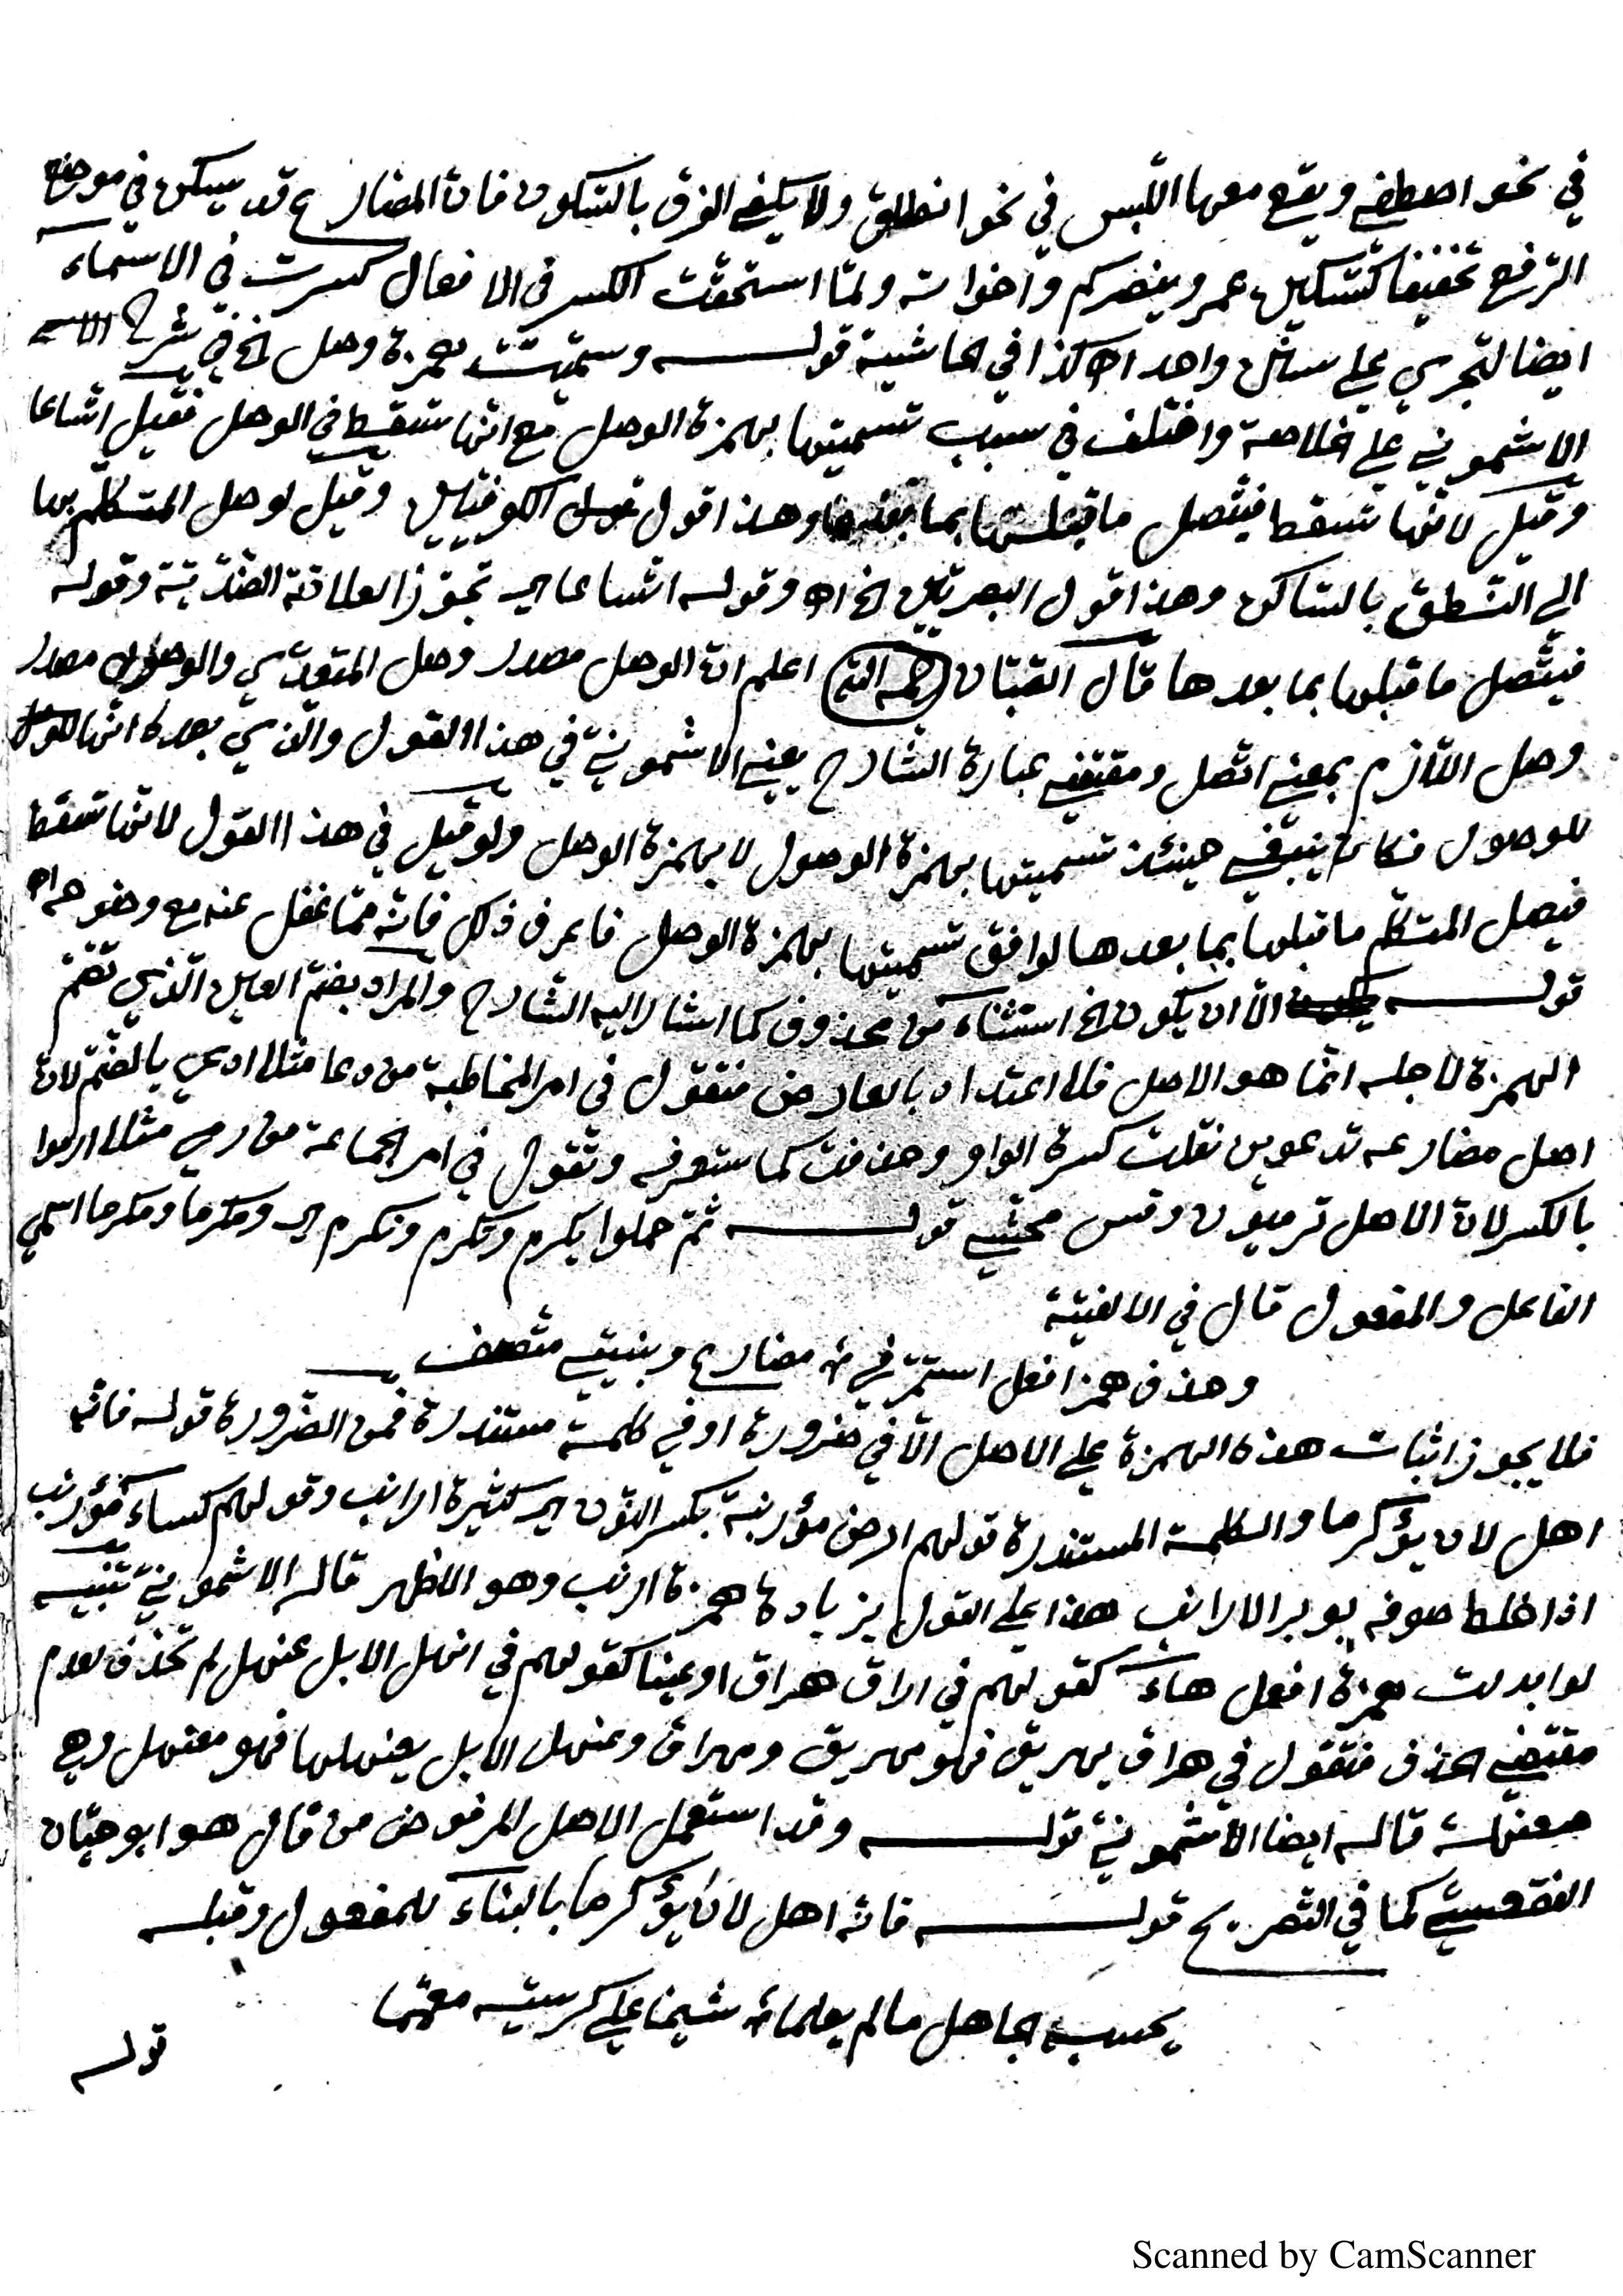 في نحو اصطفى ويقع معها اللّبس في نحو انطلق ولا يكفي الفرق بالسّكون فانّ المضارع قد يسكن في موضع
الرّفع تخفيفا كتسكين عمرو ينصركم واخواته ولمّا استحقّت الكسر في الافعال كسرت في الاسماء
ايضا لتجري على سنن واحد اه كذا في الحاشية قوله وسمّيت همزة وصل الخ في شرح
الاشموني على الخلاصة واختلف في سبب تسميتها بهمزة الوصل مع انّها تسقط في الوصل فقيل اتّساعا
وقيل لانّها تسقط فيتّصل ما قبلها بما بعدها وهذا قول الكوفيّين وقيل لوصل المتكلّم بها
الى النّطق بالسّاكن وهذا قول البصريّين الخ اه وقوله اتّساعا اي تجوّزا لعلاقة الضّدّيّة وقوله
فيتّصل ما قبلها بما بعدها قال الصّبّان رحمه الله اعلم انّ الوصل مصدر وصل المتعدّي والوصول مصدر
وصل اللّازم بمعنى اتّصل ومقتضى عبارة الشّارح يعني الاشمونيّ في هذا القول والّذي بعده انّها
للوصول فكان ينبغي حينئذ تسميتها بهمزة الوصول لا بهمزة الوصل ولو قيل في هذا القول لانّها تسقط
فيصل المتكلّم ما قبلها بما بعدها لوافق تسميتها بهمزة الوصل فاعرف ذلك فانّه ممّا غفل عنه مع وضوحه اه
قوله الّا ان يكون الخ استثناء من محذوف كما اشار اليه الشّارح والمراد بضمّ العين الّذي تضمّ
الهمزة لاجله انّما هو الاصل فلا اعتداد بالعارض فتقول في امر المخاطبة من دعا مثلا ادعي بالضّمّ لانّ
اصل مضارعه تدعوين نقلت كسرة الواو وحذفت كما ستعرفه وتقول في امر الجماعة من رمى مثلا ارموا
بالكسر لانّ الاصل ترميون وقس محشّي قوله ثمّ حملوا يكرم وتكرم ونكرم اي ومكرما ومكرما اسمي
الفاعل والمفعول قال في الالفيّة
وحذف همز افعل استمرّ في مضارع وبنيتي متّصف
فلا يجوز اثبات هذه الهمزة على الاصل الّا في ضرورة او في كلمة مستندرة فمن الضّرورة قوله فانّه
اهل لان يؤكرما والكلمة المستندرة قولهم ارض مؤرنبة بكسر النّون اي كثيرة ارانب وقولهم كساء مؤرنب
اذا خلط صوفه بوبر الارانب هذا على القول بزيادة همزة ارنب وهو الاظهر قاله الاشمونيّ تنبيه
لو ابدلت همزة افعل هاء كقولهم في اراق هراق او عينا كقولهم في انهل الابل عنهل لم تحذف لعدم
مقتضى الحذف فتقول في هراق يهريق فهو مهريق ومهراق وعنهل الابل يعنهلها فهو معنهل وهي
معنهلة قاله ايضا الاشمونيّ قوله وقد استعمل الاصل المرفوض من قال هو ابو حيّان
الفقعسيّ كما في التّصريح قوله فانّه اهل لان يؤكرما بالبناء للمفعول وقبله
يحسبه الجاهل ما لم يعلما شيخا على كرسيّه معمّما
قوله
Scanned by CamScanner